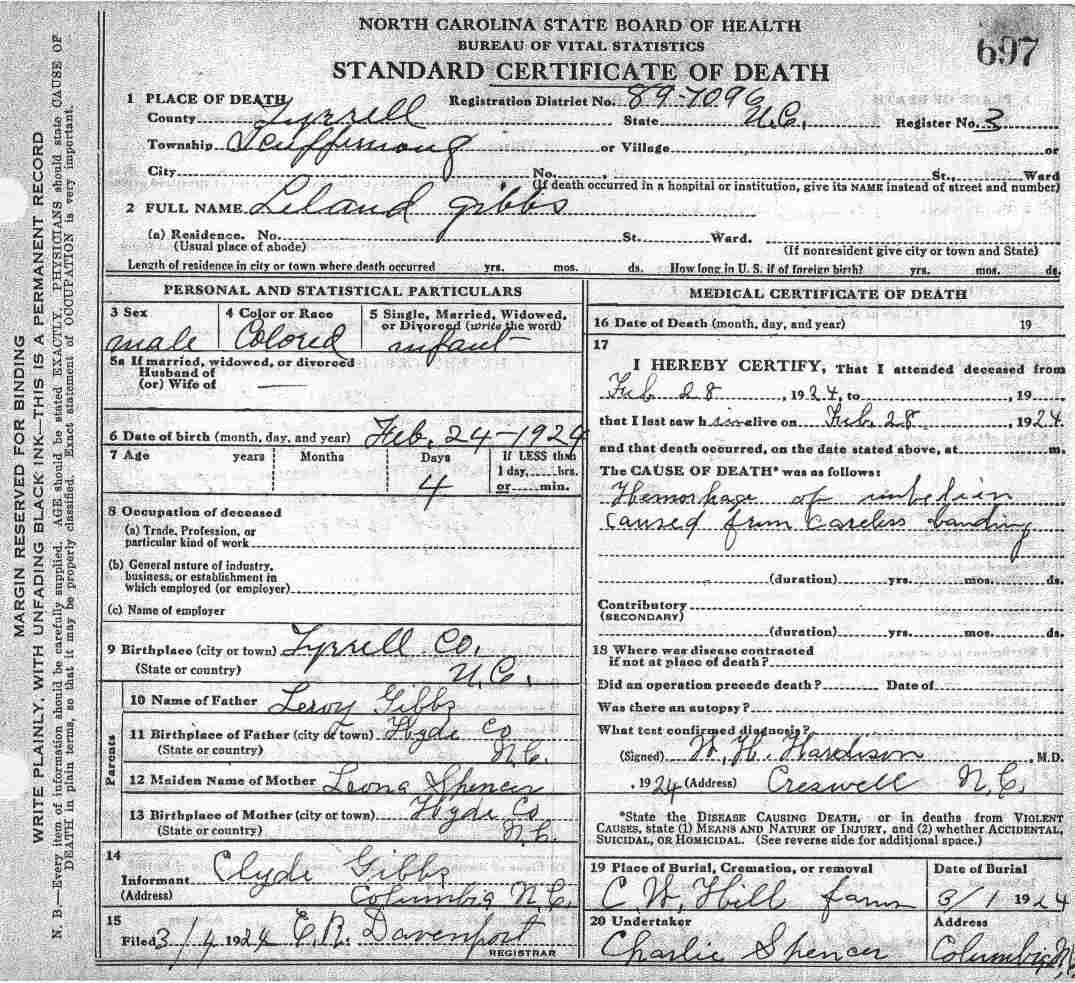 NORTH CAROLINA STATE BOARD OF HEALTH
BUREAU OF VITAL STATISTICS
STANDARD CERTIFICATE OF DEATH
697
1 PLACE OF DEATH Registration District No. 89-7096
County Tyrrell State N.C. Register No. 3
Township Scuppernong or Village or
City No. St., Ward
(If death occurred in a hospital or institution, give its NAME instead of street and number)
2 FULL NAME Leland Gibbs
(a) Residence. No. St. Ward.
(Usual place of abode) (If nonresident give city or town and State)
Length of residence in city or town where death occurred yrs. mos. ds. How long in U. S. if of foreign birth? yrs. mos. ds.
PERSONAL AND STATISTICAL PARTICULARS
3 Sex 4 Color or Race 5 Single, Married, Widowed, or Divorced (write the word)
male Colored infant
5a If married, widowed, or divorced
Husband of
(or) Wife of
6 Date of birth (month, day, and year) Feb. 24-1924
7 Age years Months Days If LESS than
1 day, hrs.
or min.
4
8 Occupation of deceased
(a) Trade, Profession, or
particular kind of work
(b) General nature of industry,
business, or establishment in
which employed (or employer)
(c) Name of employer
9 Birthplace (city or town) Tyrrell Co.
(State or country) N.C.
Parents
10 Name of Father Leroy Gibbs
11 Birthplace of Father (city or town) Hyde Co
(State or country) N.C.
12 Maiden Name of Mother Leona Spencer
13 Birthplace of Mother (city or town) Hyde Co
(State or country) N.C.
14
Informant Clyde Gibbs
(Address) Columbia N.C.
15
Filed 3/4 1924 E.R. Davenport
REGISTRAR
MEDICAL CERTIFICATE OF DEATH
16 Date of Death (month, day, and year) 19
17
I HEREBY CERTIFY, That I attended deceased from
Feb 28, 1924, to , 19
that I last saw him alive on Feb. 28, 1924
and that death occurred, on the date stated above, at m.
The CAUSE OF DEATH* was as follows:
Hemorhage of
caused from careless banding
(duration) yrs. mos. ds.
Contributory
(SECONDARY)
(duration) yrs. mos. ds.
18 Where was disease contracted
if not at place of death?
Did an operation precede death? Date of
Was there an autopsy?
What test confirmed diagnosis?
(Signed) W. H. Hardison, M.D.
, 1924 (Address) Creswell N.C.
*State the DISEASE CAUSING DEATH, or in deaths from VIOLENT
CAUSES, state (1) MEANS AND NATURE OF INJURY, and (2) whether ACCIDENTAL,
SUICIDAL, OR HOMICIDAL. (See reverse side for additional space.)
19 Place of Burial, Cremation, or removal Date of Burial
C. W. Hill farm 3/1 1924
20 Undertaker Address
Charlie Spencer Columbia, N.C.
MARGIN RESERVED FOR BINDING
WRITE PLAINLY, WITH UNFADING BLACK INK—THIS IS A PERMANENT RECORD
N. B.—Every item of information should be carefully supplied. AGE should be stated EXACTLY. PHYSICIANS should state CAUSE OF
DEATH in plain terms, so that it may be properly classified. Exact statement of OCCUPATION is very important.